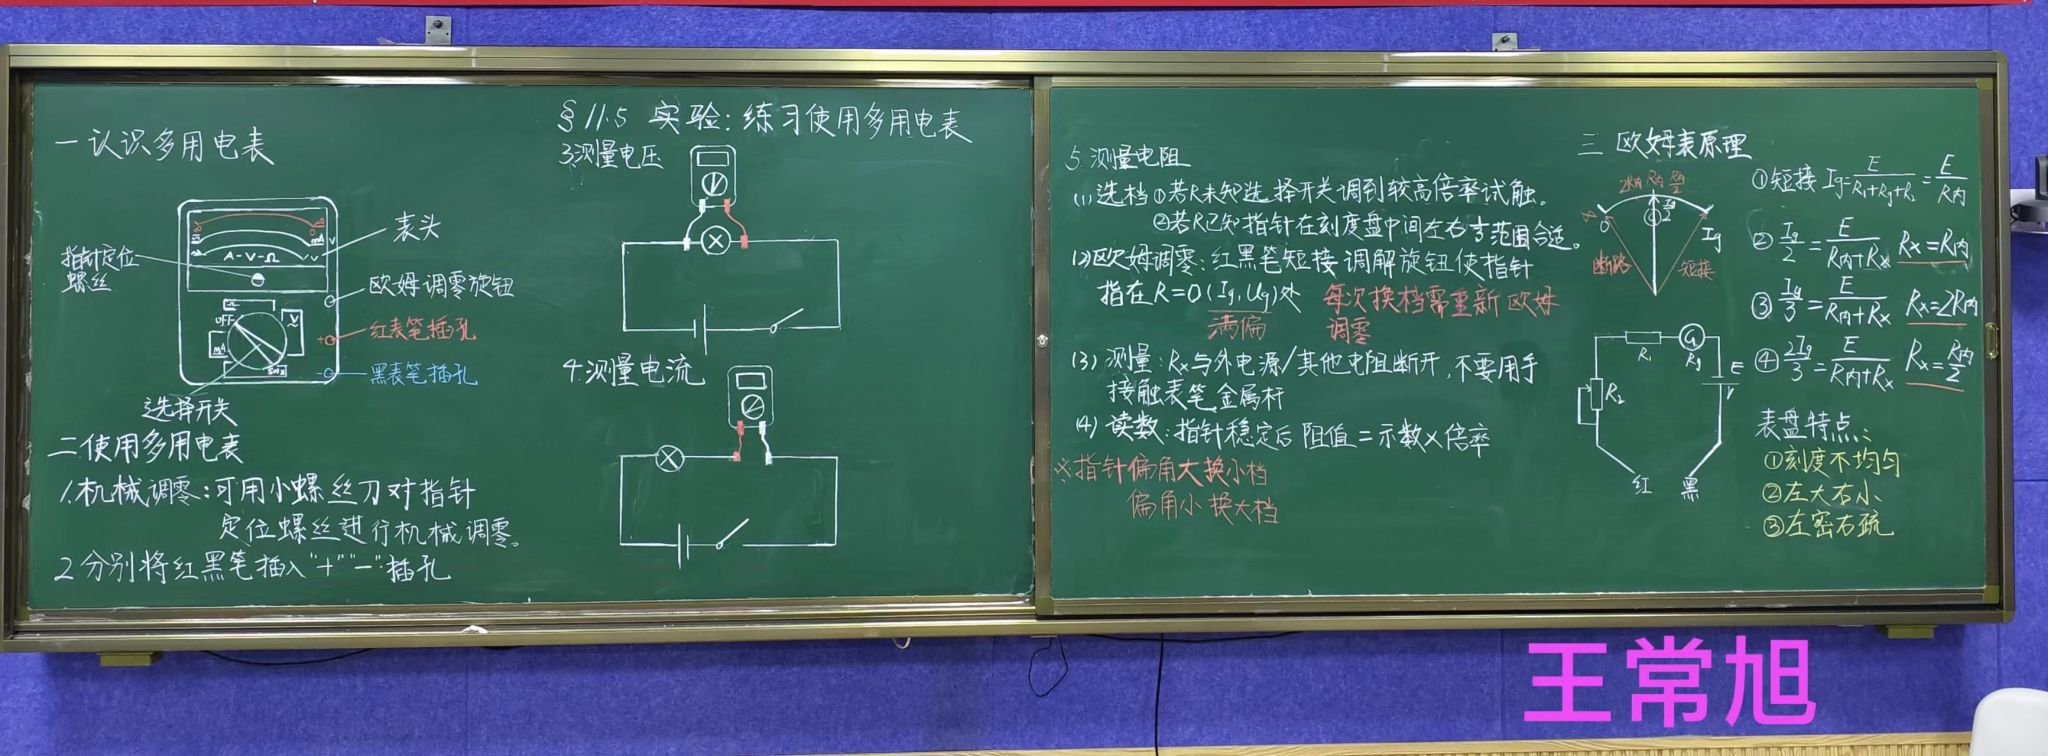 §11.5 实验:练习使用多用电表
一 认识多用电表
Ω
mA
V
A-V-Ω
表头
指针定位
螺丝
欧姆调零旋钮
OFF
Ω
V
mA
+
红表笔插孔
-
黑表笔插孔
选择开关
二.使用多用电表
1.机械调零:可用小螺丝刀对指针
定位螺丝进行机械调零。
2 分别将红黑笔插入"+""-"插孔
3.测量电压
4.测量电流
5.测量电阻
(1)选档①若R未知选择开关调到较高倍率试触。
②若R已知指针在刻度盘中间左右
范围合适。
(2)欧姆调零:红黑笔短接 调解旋钮使指针
指在R=0(Ig,Ug)处 每次换档需重新欧姆
满偏 调零
(3) 测量:Rx与外电源/其他电阻断开,不要用手
接触表笔金属杆
(4) 读数:指针稳定后 阻值=示数×倍率
※指针偏角大换小档
偏角小换大档
三 欧姆表原理
2R内 R内 R内/2
∞ 0 Ig/2 Ig
断路 短接
R1 G Rg
R2 E r
红 黑
①短接 Ig=E/(R1+Rg+R)=E/R内
②Ig/2=E/(R内+Rx) Rx=R内
③Ig/3=E/(R内+Rx) Rx=2R内
④2Ig/3=E/(R内+Rx) Rx=R内/2
表盘特点:
①刻度不均匀
②左大右小
③左密右疏
王常旭